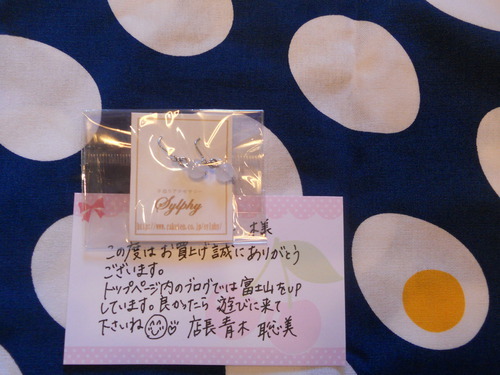 Sylphy
様
この度はお買上げ誠にありがとう
ございます。
トップページ内のブログでは富士山をup
しています。良かったら 遊びに来て
下さいね 店長 青木 聡美